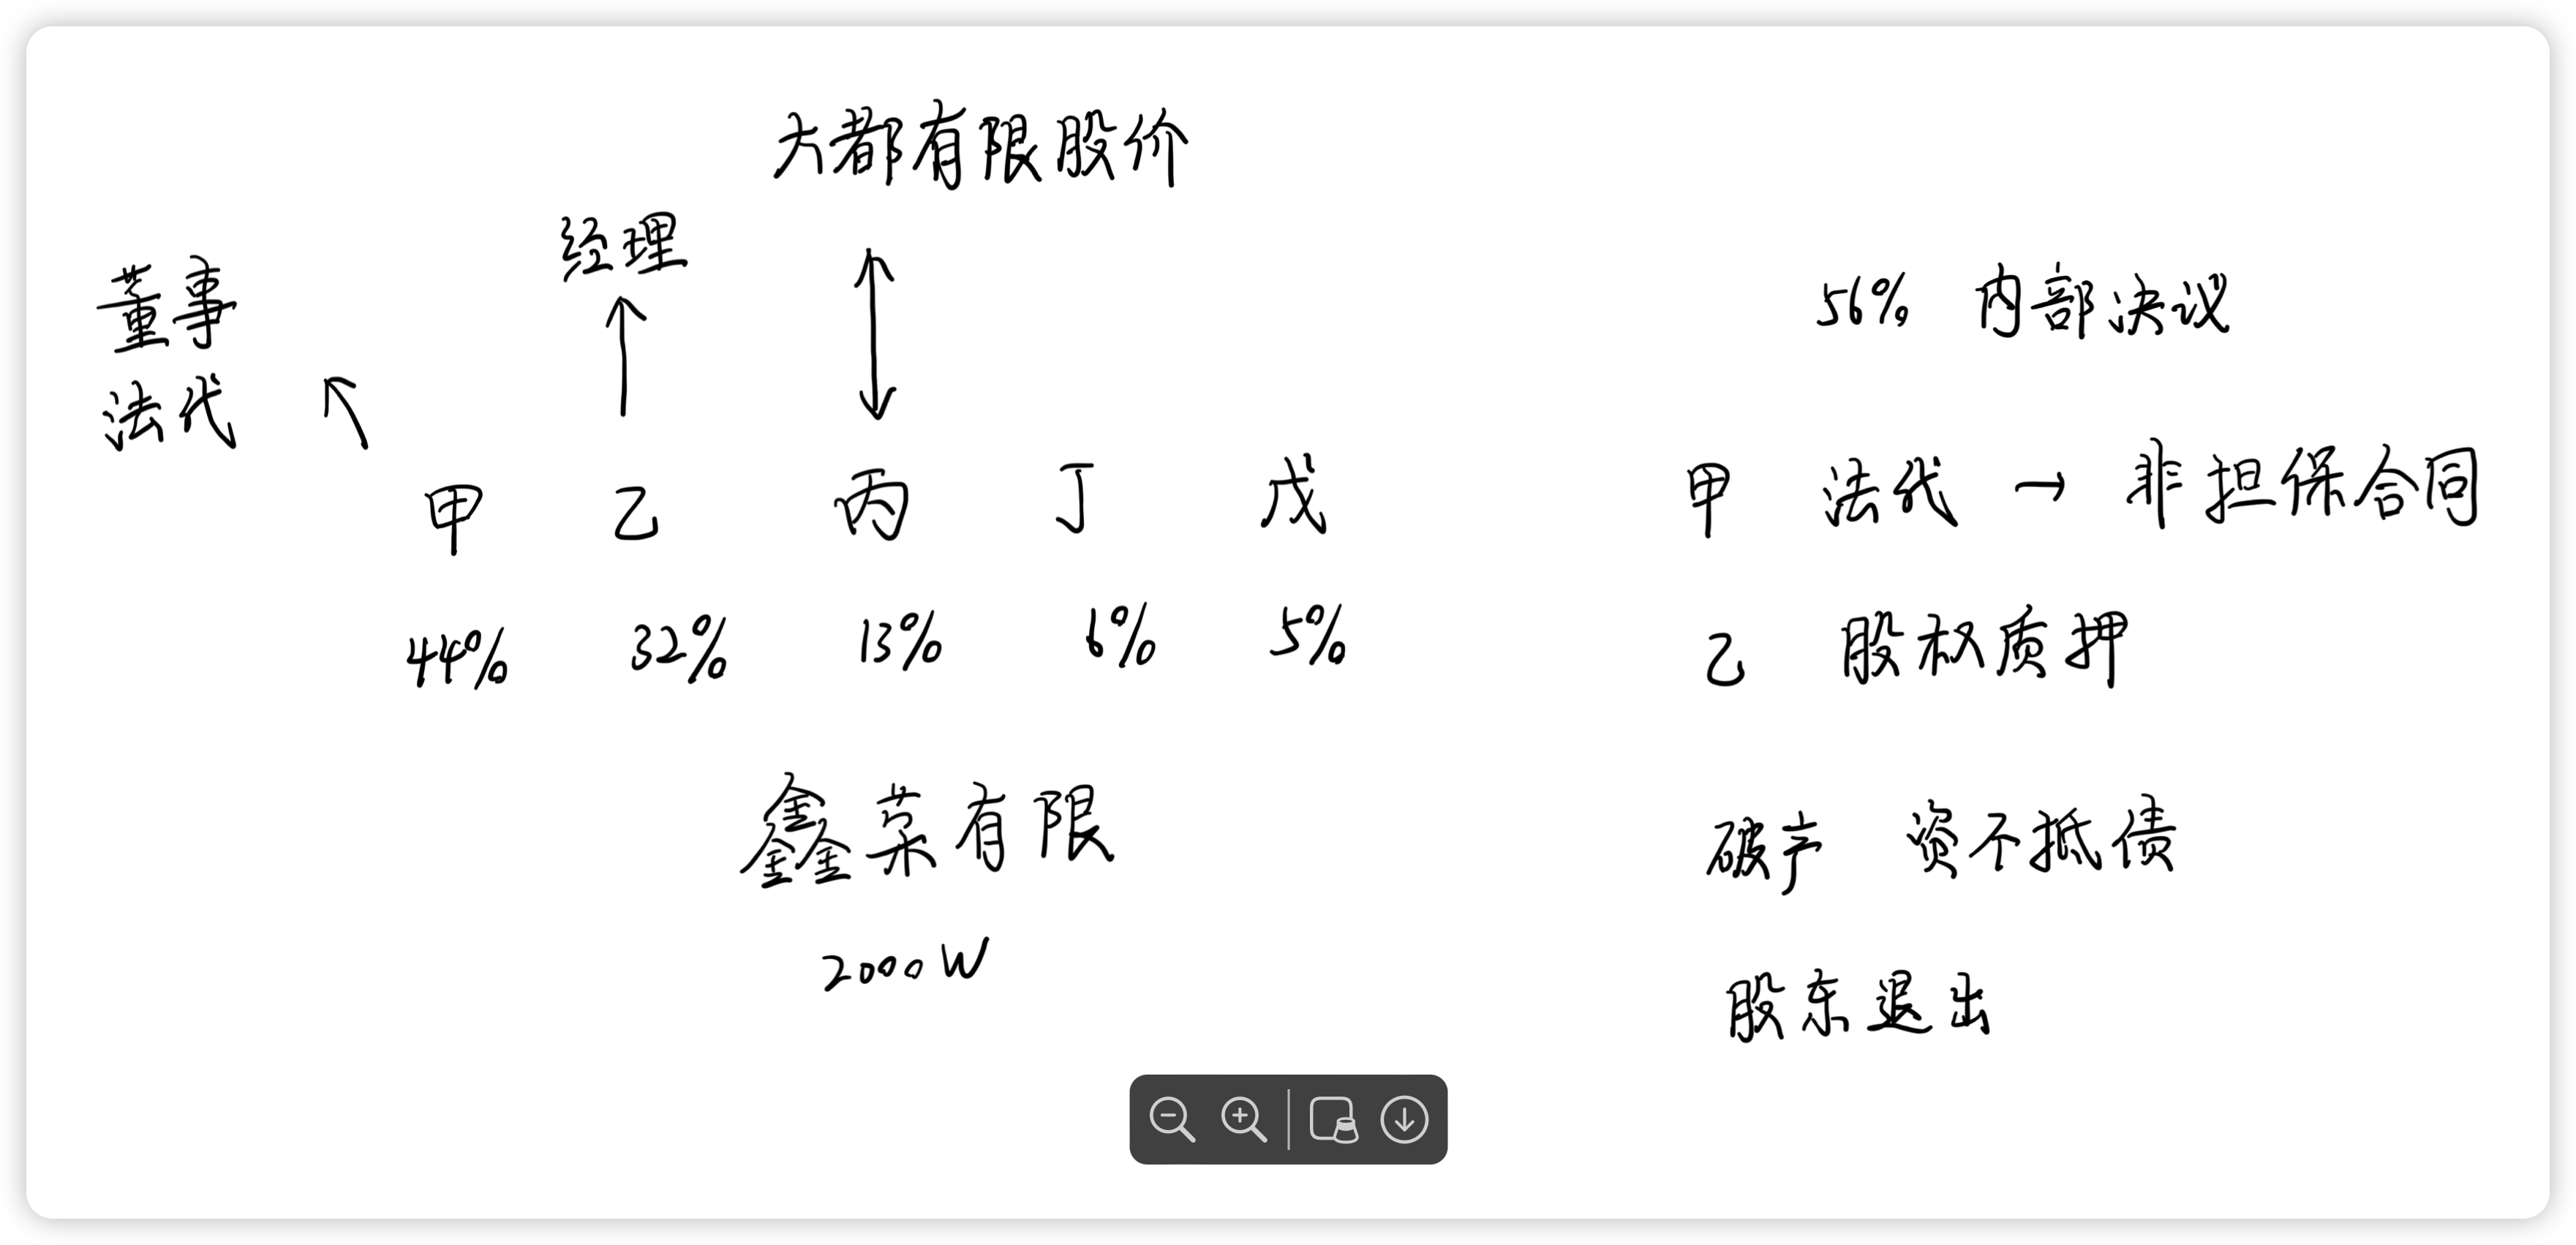 大都有限股价
经理
董事
法代
甲 乙 丙 丁 戊
44% 32% 13% 6% 5%
鑫荣有限
2000W
56% 内部决议
甲 法代 → 非担保合同
乙 股权质押
破产 资不抵债
股东退出